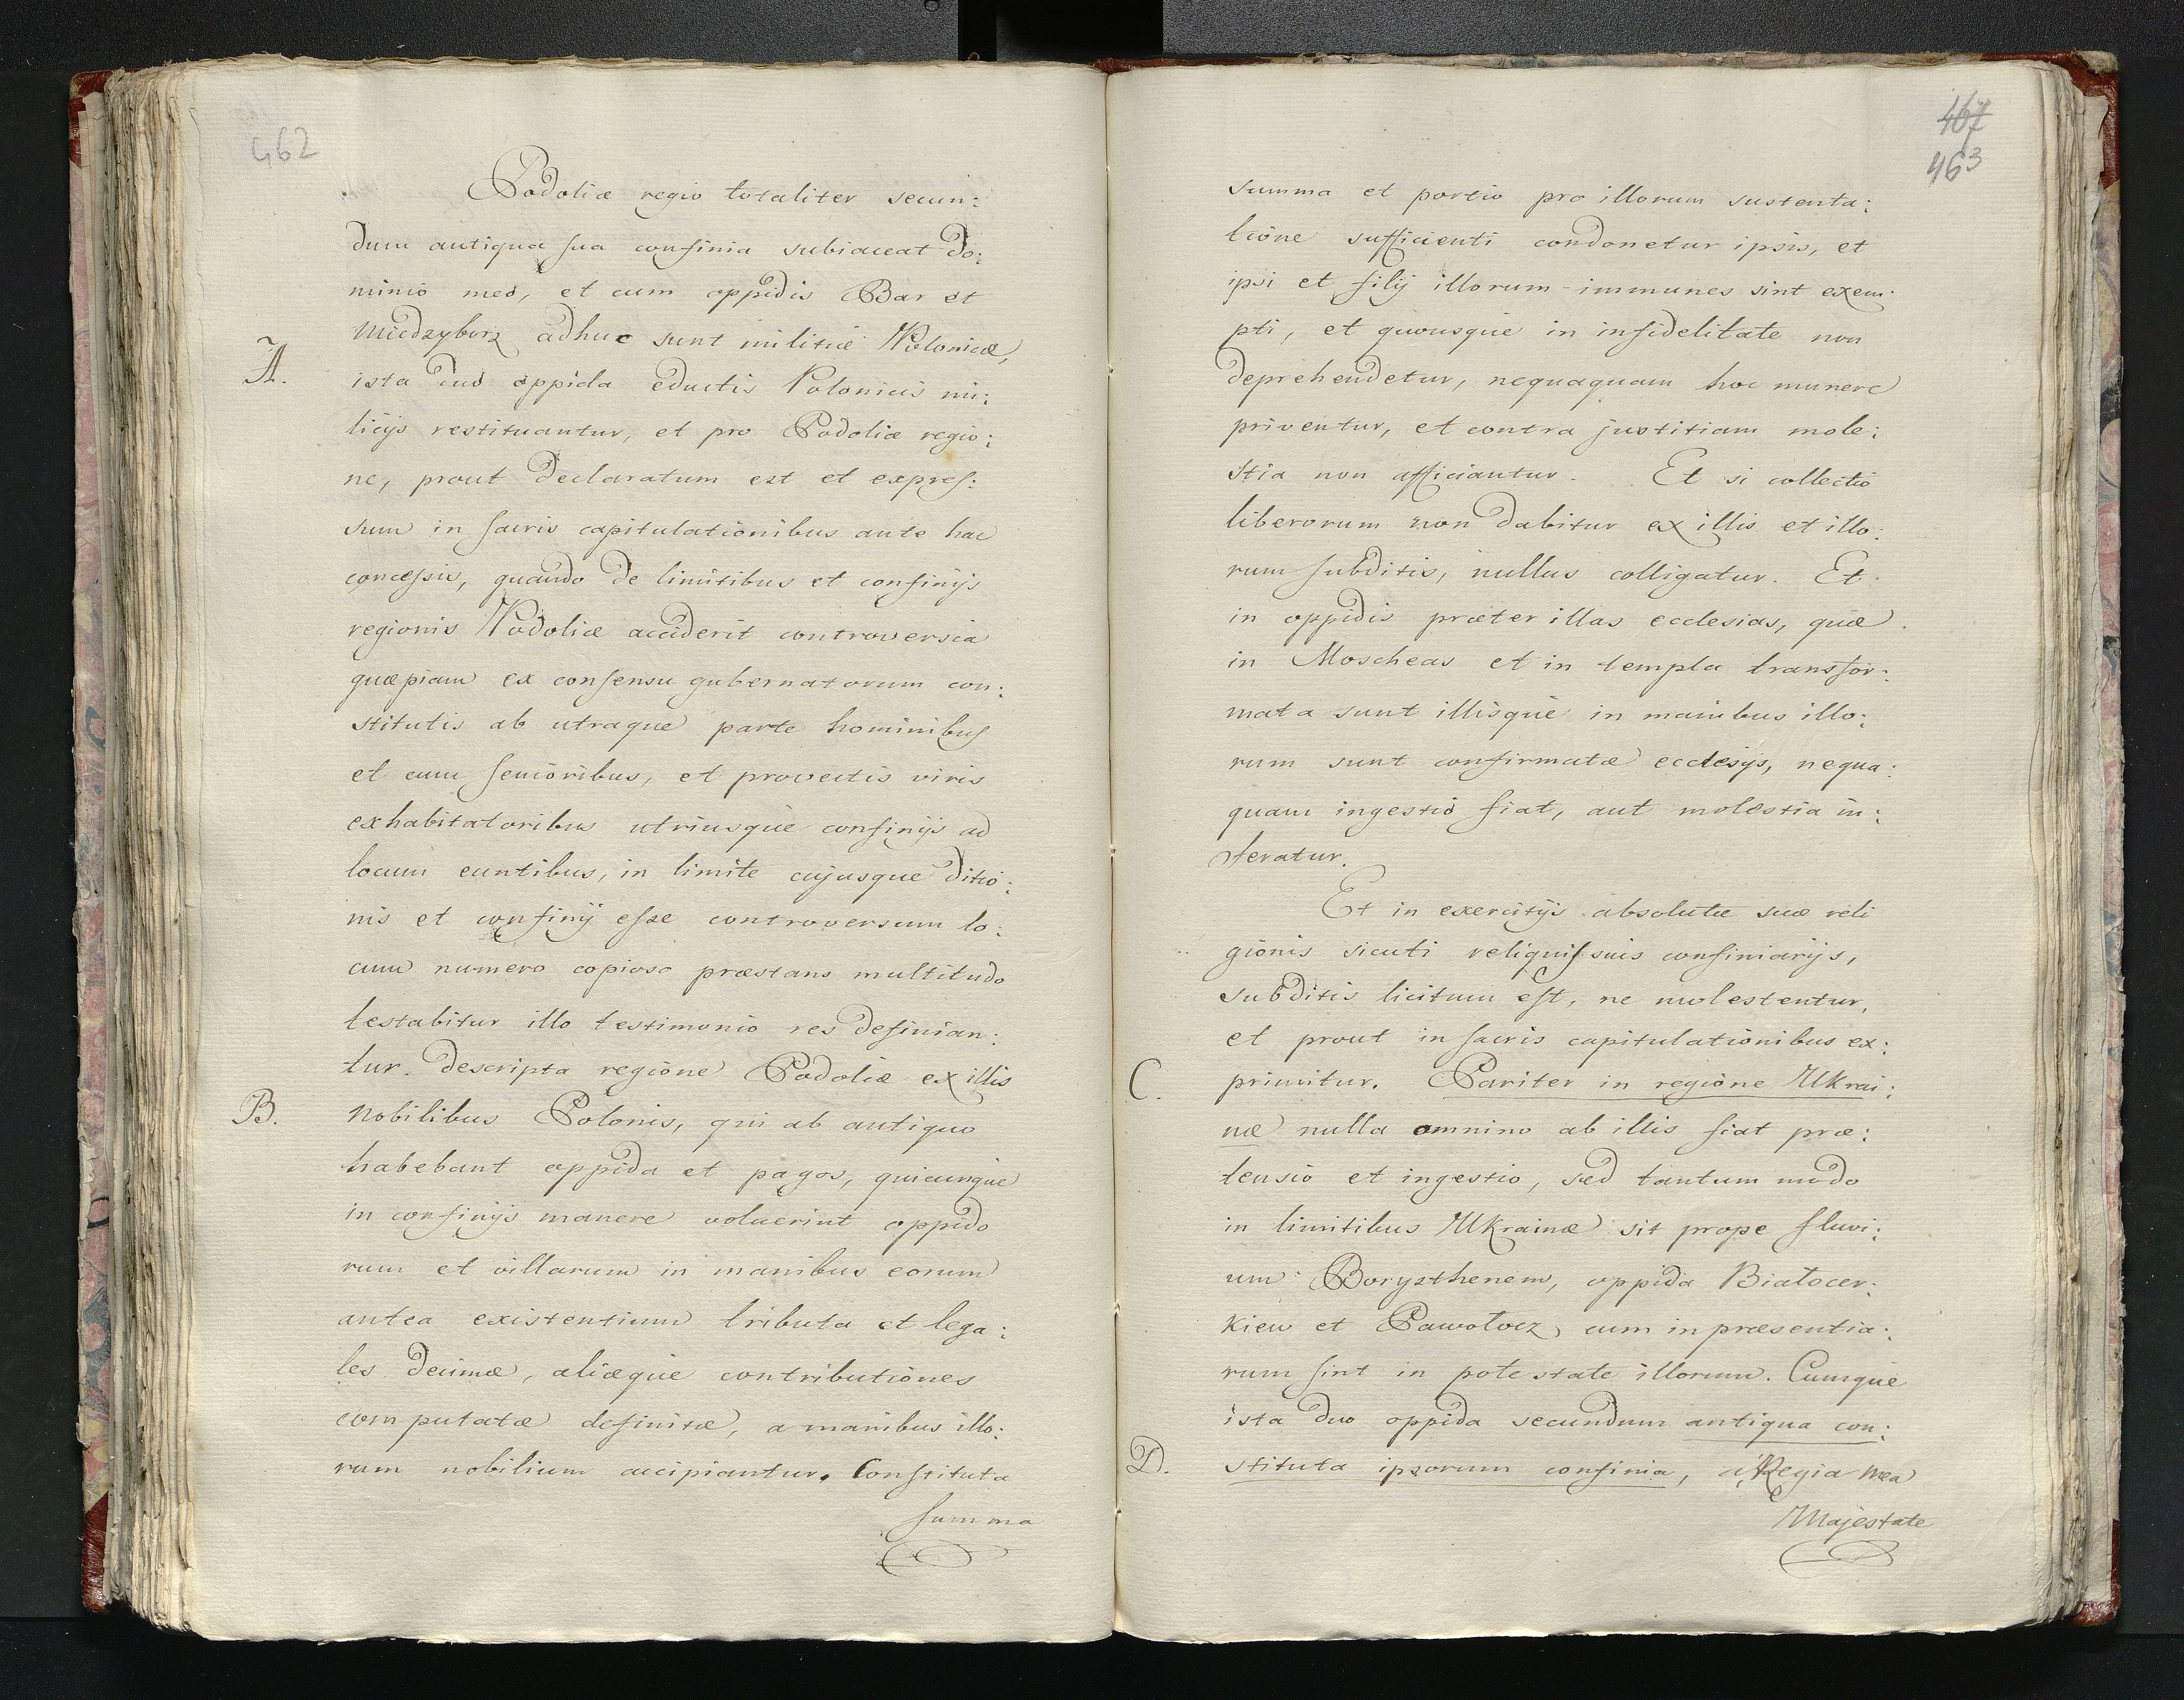 462
Podoliæ regio totaliter secun:
dum antiqua sua confinia subiaceat do:
minio meo, et cum oppidis Bar et
Miedzyborz adhuc sunt militiæ Polonicæ,
A. ista duo oppida eductis Polonicis mi:
licijs restituantur, et pro Podoliæ regio:
ne, prout declaratum est et expres:
sum in sacris capitulationibus ante hac
concessis, quando de limitibus et confinijs
regionis Podoliæ acciderit controversia
quæpiam ex consensu gubernatorum con:
stitutis ab utraque parte hominibus
et cum senioribus, et provectis viris
exhabitatoribus utriusque confinijs ad
locum euntibus, in limite cujusque ditio:
nis et confinij esse controversum lo:
cum numero copioso præstans multitudo
testabitur illo testimonio res definian:
tur. Descripta regione Podoliæ ex illis
B. Nobilibus Polonis, qui ab antiquo
habebant oppida et pagos, quicunque
in confinijs manere voluerint oppido
rum et villarum in manibus eorum
antea existentium tributa et lega:
les decimæ, aliæque contributiones
computatæ definitæ, a manibus illo:
rum nobilium accipiantur. Constituta
summa
467
463
summa et portio pro illorum sustenta:
tione sufficienti condonetur ipsis, et
ipsi et filij illorum immunes sint exem:
pti, et quousque in infidelitate non
deprehendetur, nequaquam hoc munere
priventur, et contra justitiam mole:
stia non afficiantur. Et si collectio
liberorum non dabitur ex illis et illo:
rum subditis, nullus colligatur. Et
in oppidis præter illas ecclesias, quæ
in Moscheas et in templa transfor:
mata sunt illisque in manibus illo:
rum sunt confirmatæ ecclesijs, nequa:
quam ingestio fiat, aut molestia in:
feratur.
Et in exercitijs absolutæ suæ reli
gionis sicuti reliquis suis confiniarijs,
subditis licitum est, ne molestentur,
et prout in sacris capitulationibus ex:
C. primitur. Pariter in regione Ukrai:
næ nulla omnino ab illis fiat præ:
tensio et ingestio, sed tantum modo
in limitibus Ukrainæ sit prope fluvi:
um Borysthenem, oppida Białocer:
kiew et Pawołocz, cum in præsentia:
rum sint in potestate illorum. Cumque
ista duo oppida secundum antiqua con:
D. stituta ipsorum confinia, a Regia Mea
Majestate